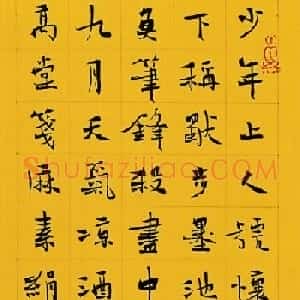 少年上人號懷
下稱獨步墨池
魚筆鋒殺盡中
九月天氣凉酒
高堂箋麻素絹
Shufaziliao.COM